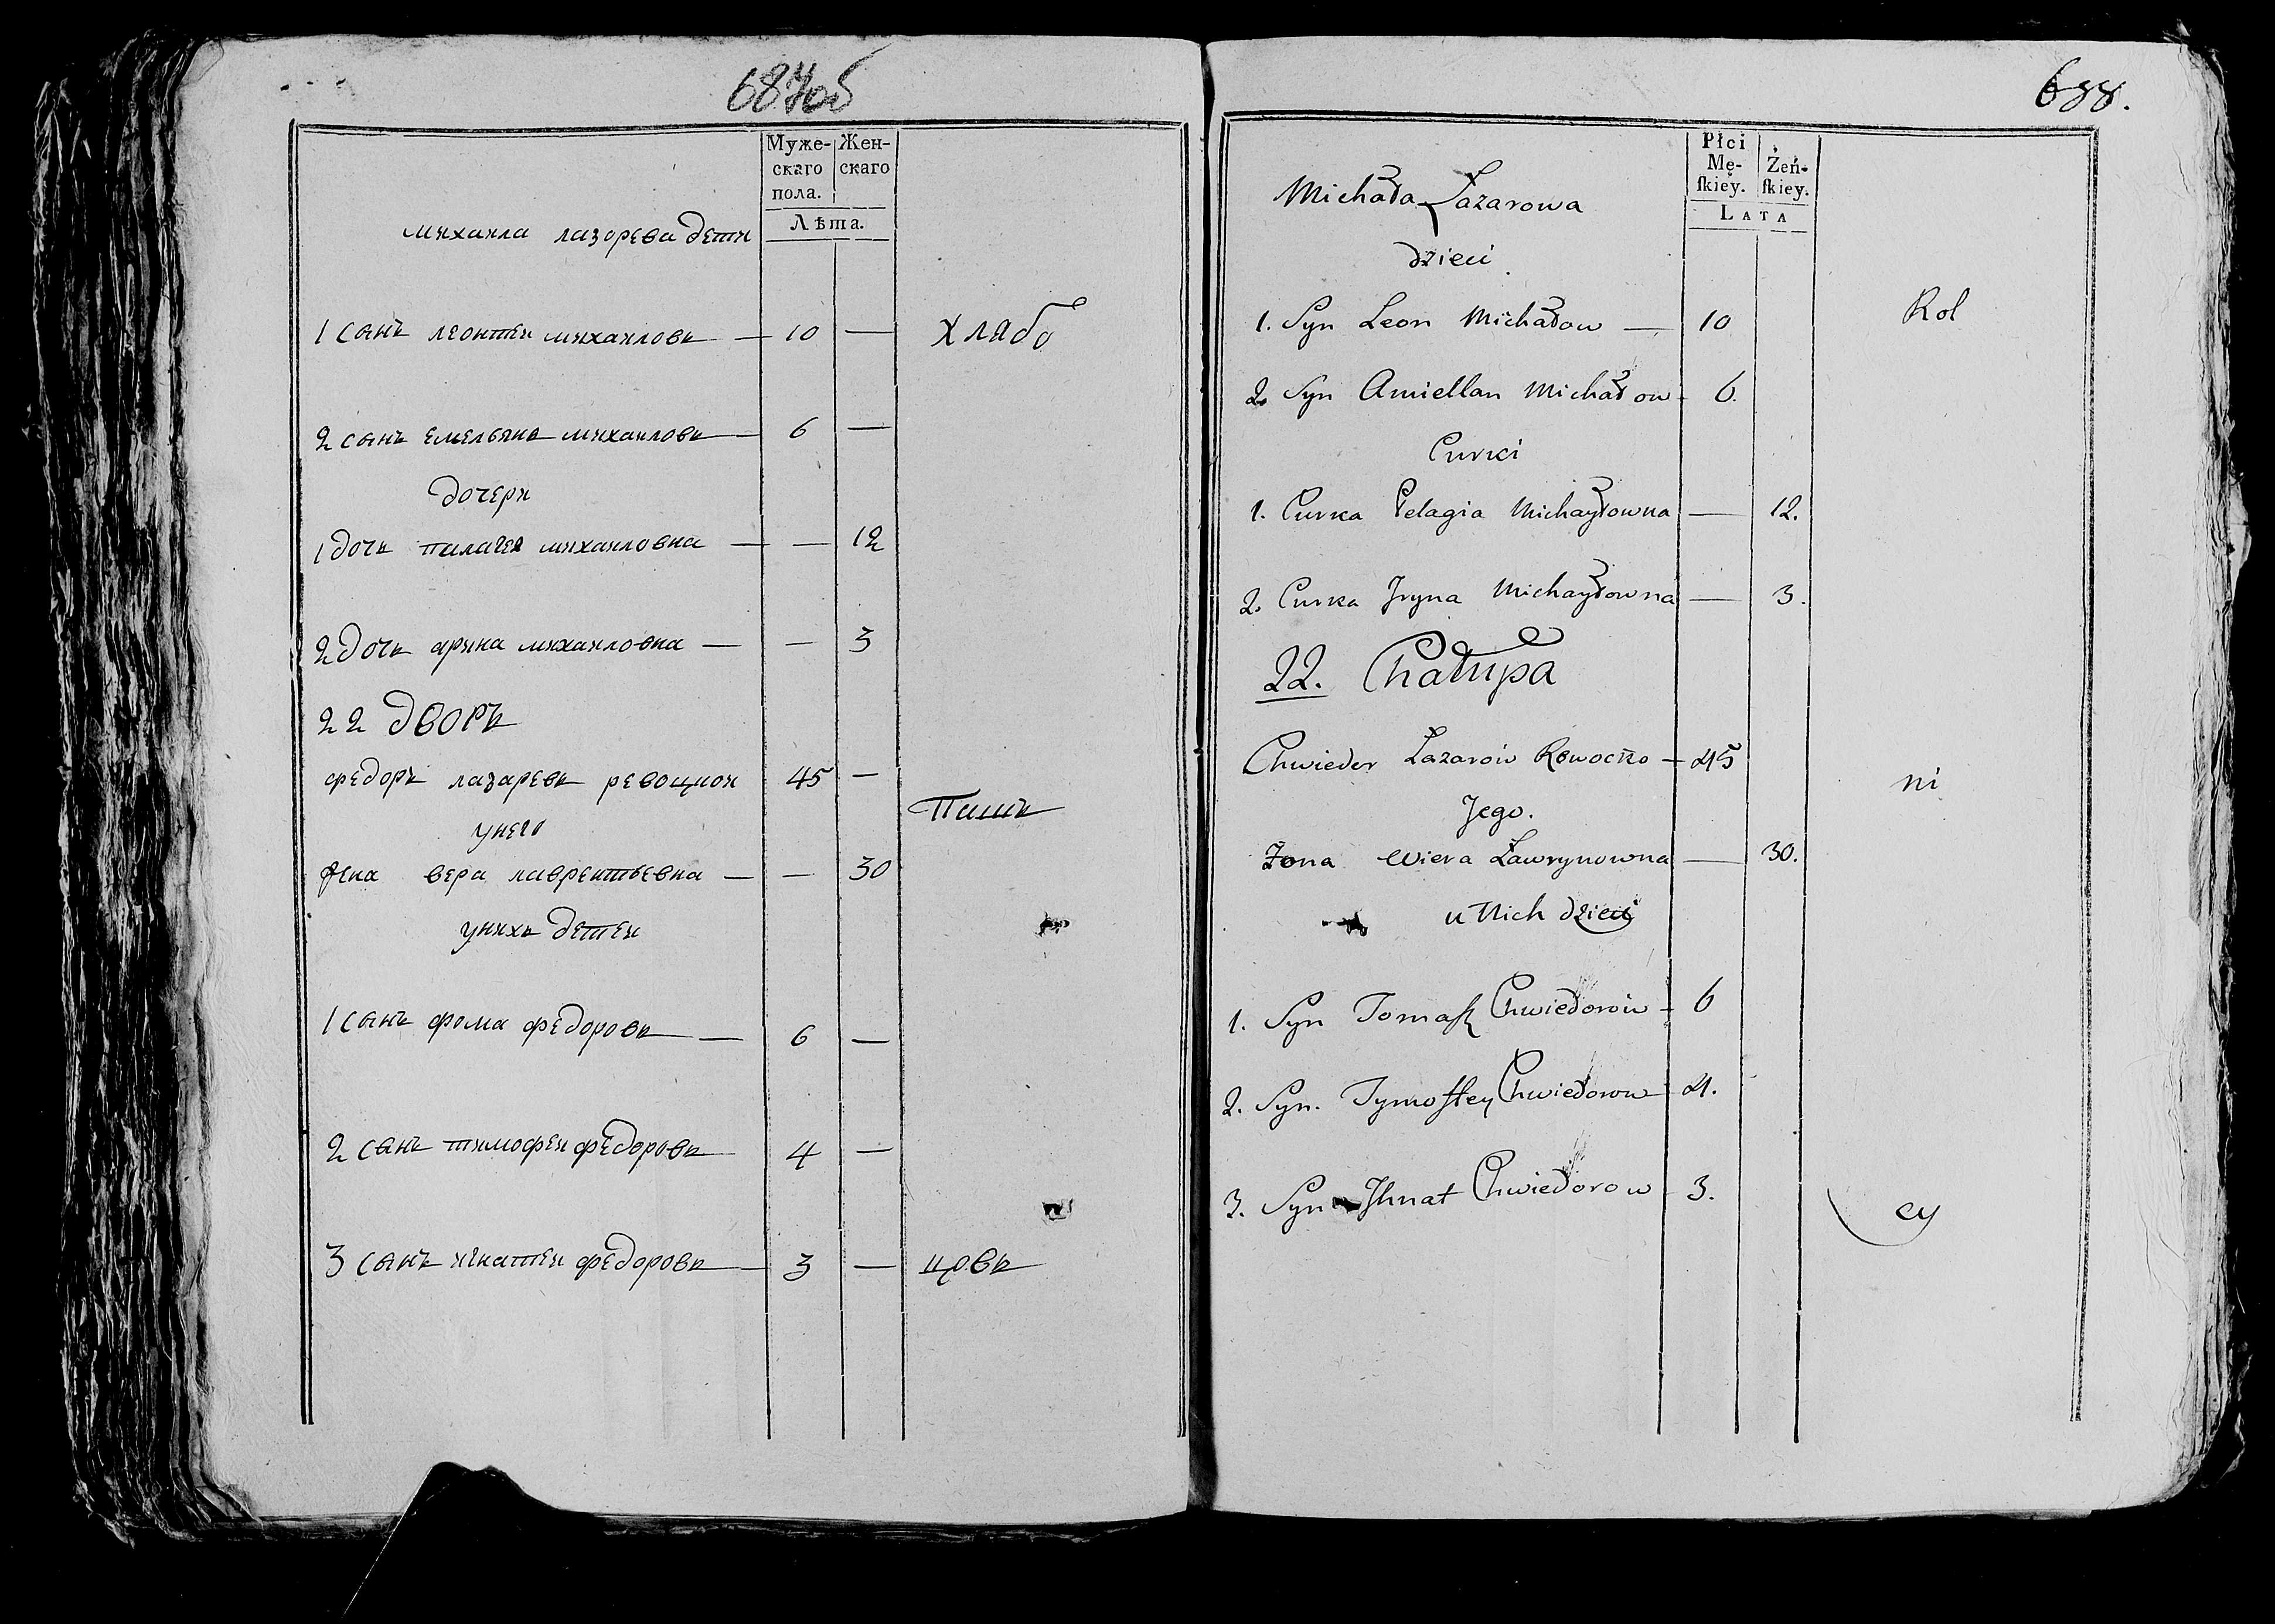 687об
Муже-
скаго
пола.
Жен-
скаго
Лѣта.
михаила лазорева дети
1 сынъ леонтеи михаиловъ — 10 — хлябо
2 сынъ емельянъ михаиловъ — 6 —
дочери
1 дочь палагея михаиловна — — 12
2 дочь арина михаиловна — — 3
22 дворъ
федоръ лазаревъ 45 —
Пашъ
унего
жена вера лаврентьевна — — 30
унихъ детеи
1 сынъ фома федоровъ — 6 —
2 сынъ тимофеи федоровъ 4 —
3 сынъ игнатеи федоровъ — 3 — цовъ
688.
Płci
Mę-
ſkiey.
Żeń-
ſkiey.
LATA
Michała Łazarowa
dzieci
1. Syn Leon Michałow — 10 Rol
2. Syn Amiellan Michałow 6.
Curki
1. Curka Pelagia Michayłowna — 12.
2. Curka Jryna Michayłowna — 3.
22. Chałupa
Chwieder Łazarow — 45 ni
Jego.
Żona Wiera Ławrynowna — 30.
u Nich dzieci
1. Syn Tomaſz Chwiedorow - 6
2. Syn. Tymoſzey Chwiedorow 4.
3. Syn Jhnat Chwiedorow 3. cy